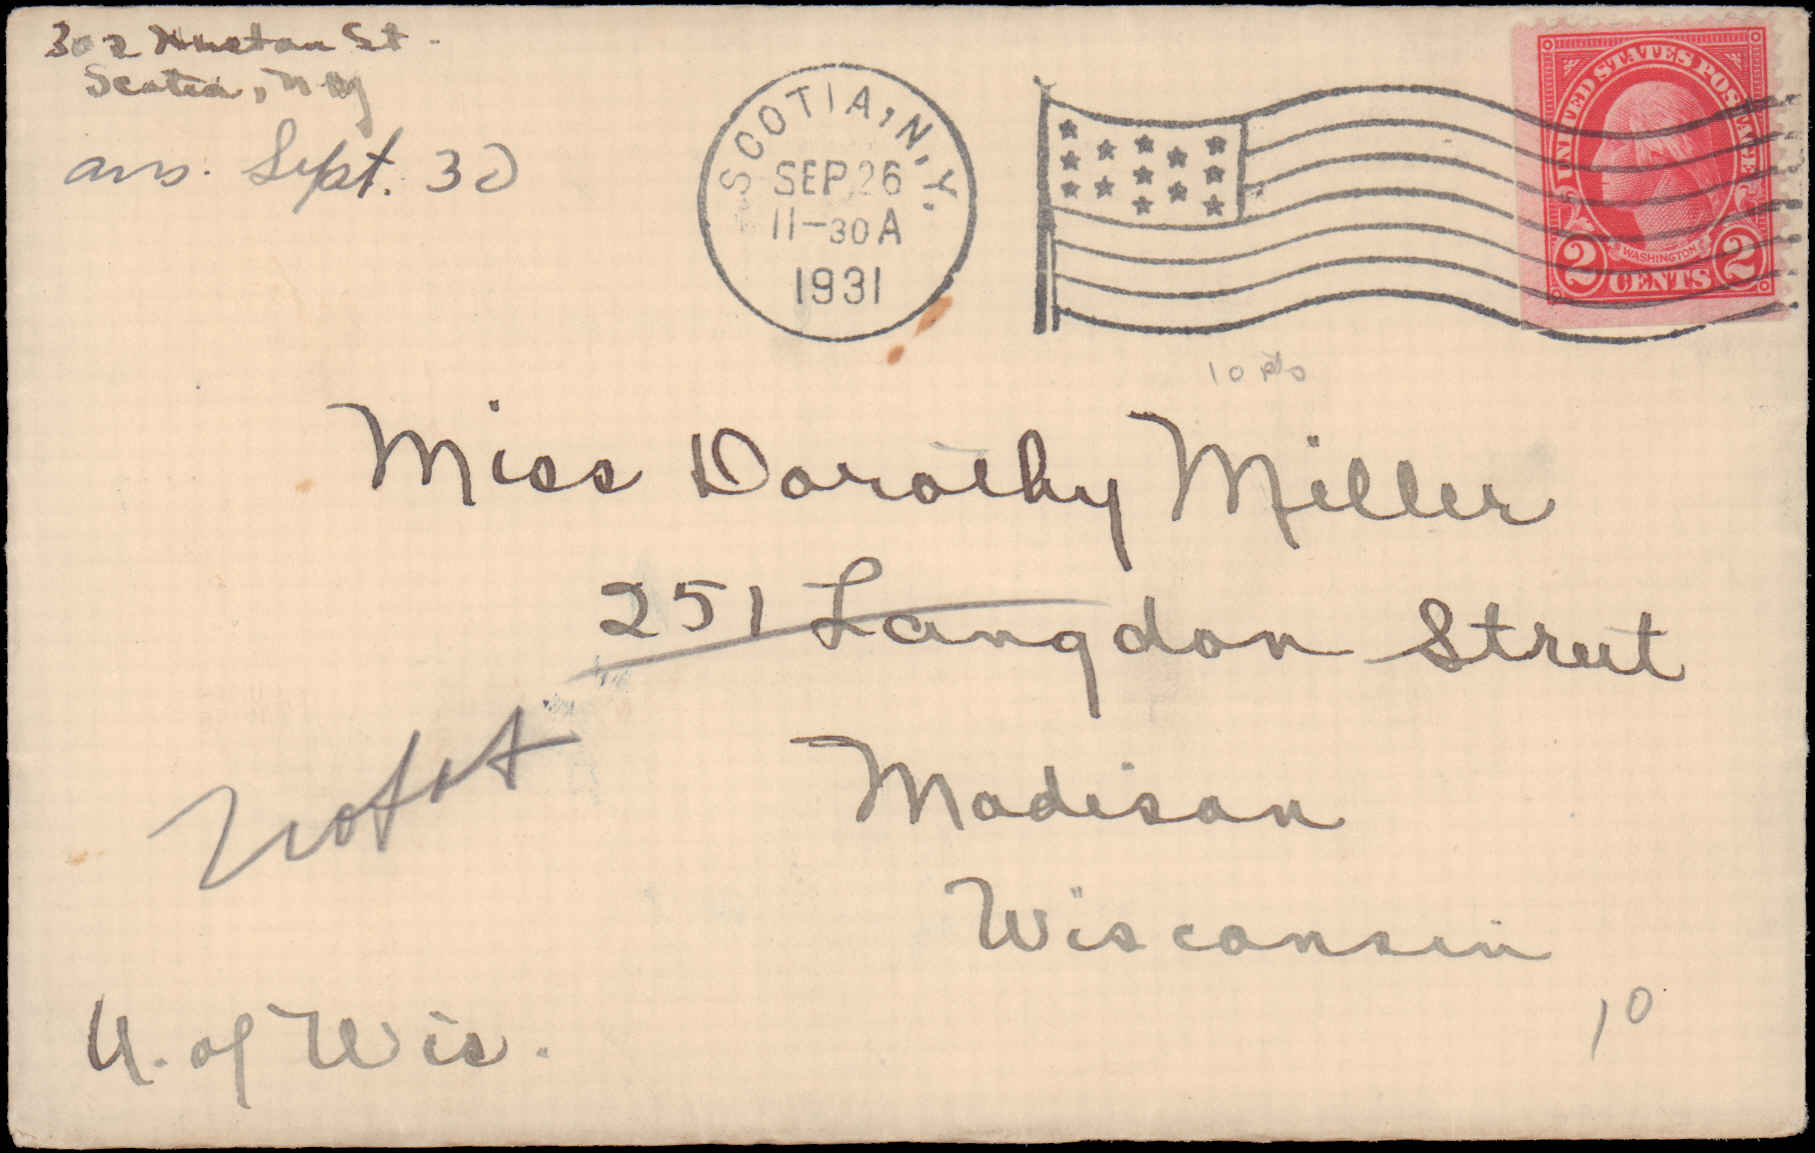 302 Huston St.
Scotia, N.Y
ans. Sept. 30
SCOTIA, N.Y.
SEP 26
11-30 A
1931
UNITED STATES POSTAGE
WASHINGTON
2 CENTS 2
10
Miss Dorothy Miller
251 Langdon Street
Madison
Wisconsin
Not at
U. of Wis.
10